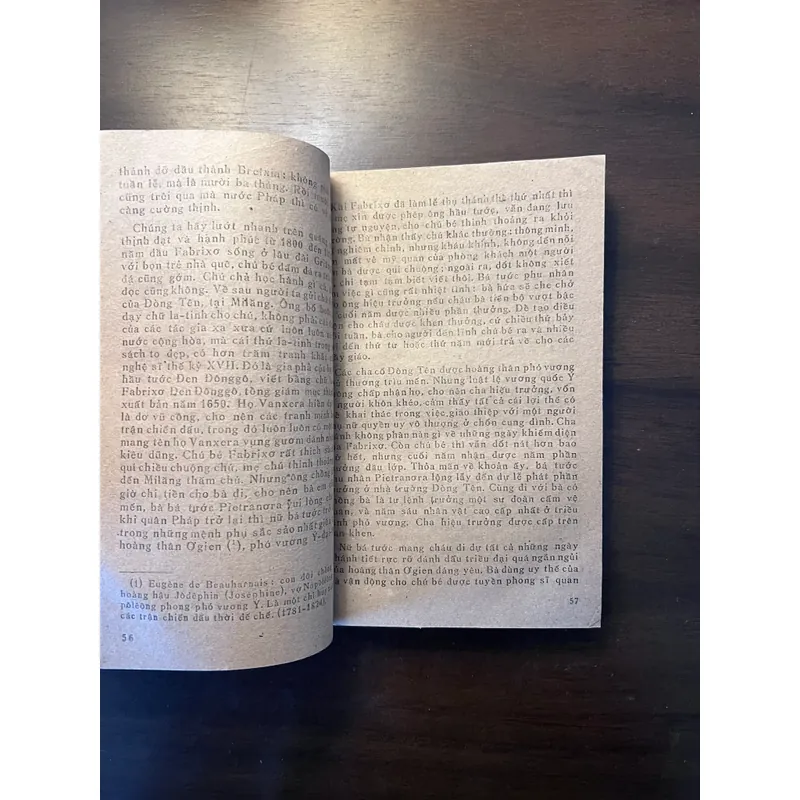 thánh đỡ đầu thành Bretxia: không
tuần lễ, mà là mười ba tháng. Rồi
cũng trôi qua mà nước Pháp thì cứ
càng cường thịnh.
Chúng ta hãy lướt nhanh trên quãng
thịnh đạt và hạnh phúc từ 1800 đến
năm đầu Fabrixơ sống ở lâu đài
với bọn trẻ nhà quê, chú bé đấm đá ra
đã cũng gớm. Chú chả học hành gì cả,
đọc cũng không. Về sau người ta gởi chú
của Dòng Tên, tại Milăng. Ông bố
dạy chữ la-tinh cho chú, không phải
của các tác giả xa xưa cứ luôn luôn
nước cộng hòa, mà cái thứ la-tinh trong
sách to đẹp, có hơn trăm tranh khắc
nghệ sĩ thế kỷ XVII. Đó là gia phả của họ
hầu tước Đen Đônggô, viết bằng chữ
Fabrixơ Đen Đônggô, tổng giám mục
xuất bản năm 1650. Họ Vanxera hiển
là do vũ công, cho nên các tranh minh
trận chiến đấu, trong đó luôn luôn có
mang tên họ Vanxera vung gươm đánh
kiêu dũng. Chú bé Fabrixơ rất thích
quí chiều chuộng chú, mẹ chú thỉnh thoảng
đến Milăng thăm chú. Nhưng ông chồng
giờ chi tiền cho bà đi, cho nên bà em
mến, bà bá tước Pietranơra vui lòng
khi quân Pháp trở lại thì nữ bá tước
trong những mệnh phụ sắc sảo nhất
hoàng thân Ơgien (¹), phó vương Ý-đại
(1) Eugène de Beauharnais: con đời chồng
hoàng hậu Jôdêphin (Joséphine), vợ Napôlêông
pôlêông phong phó vương Ý. Là một chỉ huy
các trận chiến đấu thời đế chế. (1781-1824).
56
Khi Fabrixơ đã làm lễ thụ thánh thể thứ nhất thì
xin được phép ông hầu tước, vẫn đang lưu
tự nguyện, cho chú bé thỉnh thoảng ra khỏi
Bà nhận thấy chú khác thường: thông minh,
nghiêm chỉnh, nhưng kháu khỉnh, không đến nỗi
mất vẻ mỹ quan của phòng khách một người
bà được quí chuộng; ngoài ra, dốt không xiết
chỉ tạm tạm biết viết thôi. Bà tước phu nhân
việc gì cũng rất nhiệt tình: bà hứa sẽ che chở
ông hiệu trưởng nếu cháu bà tiến bộ vượt bậc
cuối năm được nhiều phần thưởng. Để tạo điều
cho cháu được khen thưởng, cứ chiều thứ bảy
tuần, bà cho người đến lĩnh chú bé ra và nhiều
đến thứ tư hoặc thứ năm mới trả về cho các
thày giáo.
Các cha cố Dòng Tên được hoàng thân phó vương
thương trìu mến. Nhưng luật lệ vương quốc Ý
không chấp nhận họ, cho nên cha hiệu trưởng, vốn
người khôn khéo, cảm thấy tất cả cái lợi thế có
khai thác trong việc giao thiệp với một người
nữ quyền uy vô thượng ở chốn cung đình. Cha
không phàn nàn gì về những ngày khiếm diện
Fabrixơ. Còn chú bé thì vẫn dốt nát hơn bao
hết, nhưng cuối năm nhận được năm phần
thưởng đầu lớp. Thỏa mãn về khoản ấy, bà tước
nhân Pietranơra lộng lẫy đến dự lễ phát phần
thưởng ở nhà trường Dòng Tên. Cùng đi với bà có
chồng bà là tư lệnh trưởng một sư đoàn cấm vệ
và năm sáu nhân vật cao cấp nhất ở triều
đình phó vương. Cha hiệu trưởng được cấp trên
ban khen.
Nữ bá tước mang cháu đi dự tất cả những ngày
khánh tiết rực rỡ đánh dấu triều đại quá ngắn ngủi
của hoàng thân Ơgien đáng yêu. Bà dùng uy thế của
vận động cho chú bé được tuyển phong sĩ quan
57